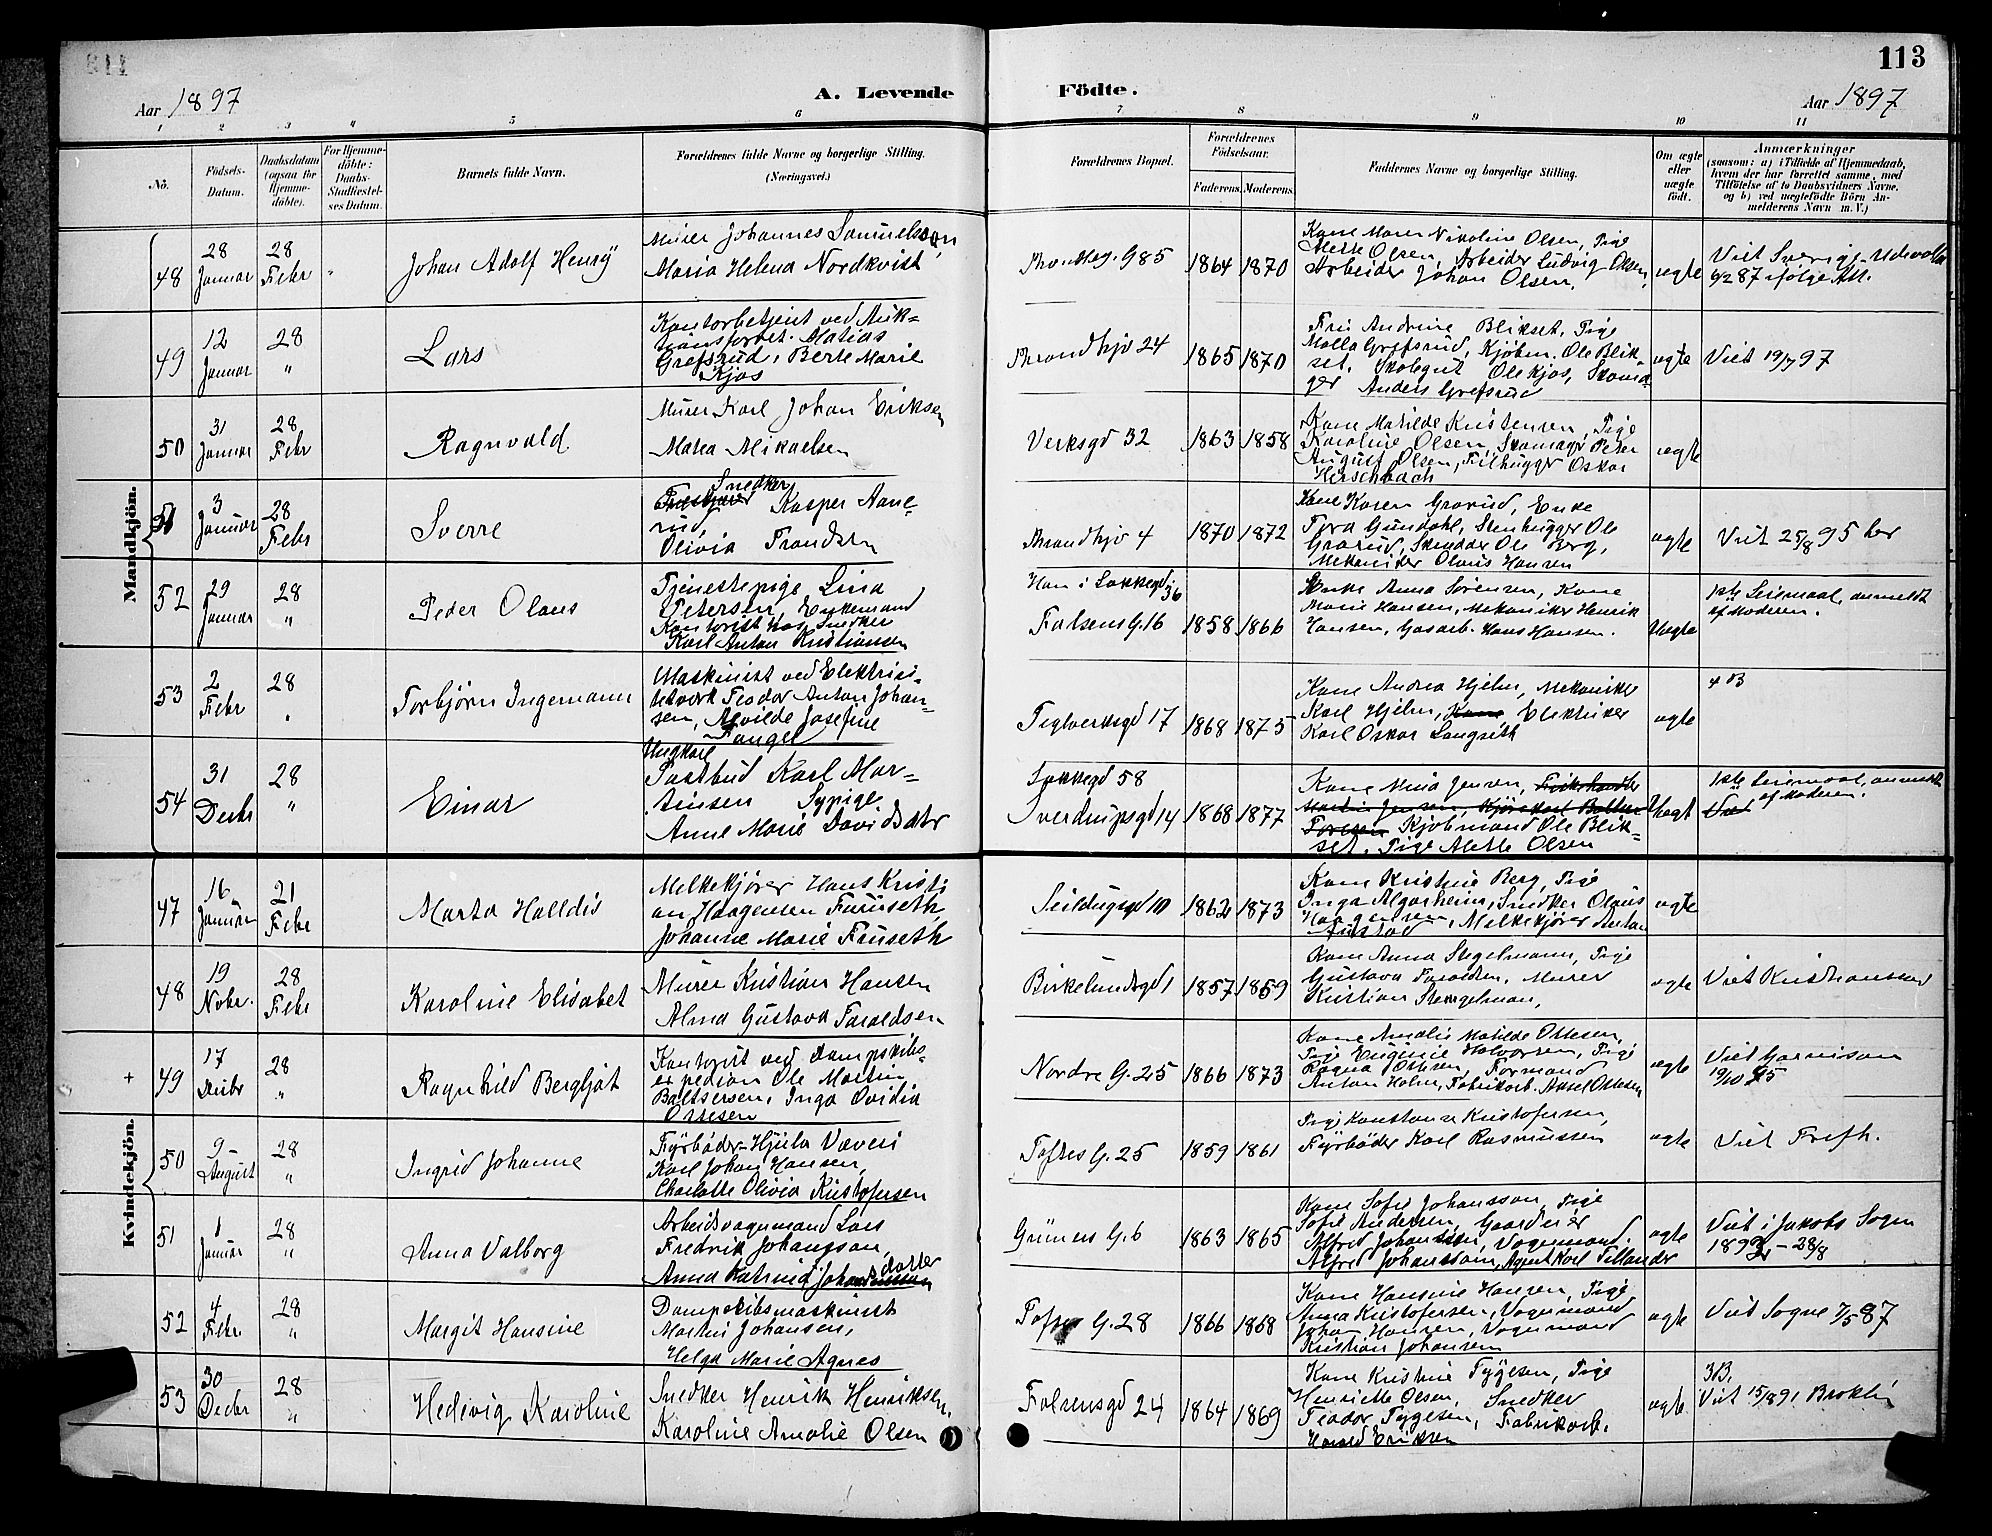 113
Aar 1897
A. Levende Födte.
Aar 1897
1 2 3 4 5 6 7 8 9 10 11
No.
Födsels-Datum.
Daabsdatum (ogsaa for Hjemme-döbte).
For Hjemme-döbte: Daabs-Stadfæstel-ses Datum.
Barnets fulde Navn.
Forældrenes fulde Navne og borgerlige Stilling. (Næringsvei.)
Forældrenes Bopæl.
Forældrenes Födselsaar.
Faderens. Moderens.
Faddernes Navne og borgerlige Stilling.
Om ægte eller uægte födt.
Anmærkninger (saasom: a) i Tilfælde af Hjemmedaab, hvem der har forrettet samme, med Tilföielse af to Daabsvidners Navne, og b) ved uægtefödte Börn An-melderens Navn m. V.)
Mandkjön.
48
28 Januar
28 Febr
Johan Adolf Henry
Murer Johannes Samuelsson,
Maria Helena Nordkvist
985
1864 1870
Kone Maren Nikoline Olsen, Pige
Mette Olsen, Arbeider Ludvig Olsen,
Arbeider Johan Olsen.
ægte
Viet Sverige
87 ifølge Att.
49
12 Januar
28 "
Lars
Kontorbetjent ved Auk-
Matias
Grefsrud, Berte Marie
Kjos
Throndhjv 24
1865 1870
Fru Andrine Blikset, Pige
Grefsrud, Kjøbm. Ole Blik-
set. Skolegut Ole Kjos, Skoma-
ger Anders Grefsrud
ægte
Viet 19/7 97
50
31 Januar
28 Febr
Ragnvald
Murer Karl Johan Eriksen
Matea Mikaelsen
Verksgd 32
1863 1858
Kone Matilde Kristensen, Pige
Karoline Olsen, Skomagr Peter
August Olsen, Filhugger Oskar
Herschbach
ægte
51
3 Januar
28 Febr
Sverre
Snedker
Kasper Aane-
rud,
Olivia Frandsen
Throndhjv 4
1870 1872
Kone Karen Grorud, Enke
Tora Gundahl, Stenhugger Ole
Grorud, Ole Berg,
Mekaniker Olaus Hansen
ægte
Viet 25/8 95 her
52
29 Januar
28 "
Peder Olaus
Tjenestepige Lina
Petersen, Enkemand
Kontorist hos Snedker
Karl Anton Kristiansen
Han i Sakkegd 36
Falsens G. 16
1858 1866
Enke Anna Sørensen, Kone
Marie Hansen, Mekaniker Henrik
Hansen, Gasarb. Hans Hansen.
Uægte
1ste Leiermaal, anmeldt
af Moderen.
53
2 Febr
28 "
Torbjørn Ingemann
Maskinist ved Elektrisi-
tetverk Teodor Anton Johan-
sen, Alvilde Josefine
Fangel
Teglverksgd 17
1868 1875
Kone Andrea Hjelm, Mekaniker
Karl Hjelm, Kone Elektriker
Karl Oskar Langseth
ægte
4 B
54
31 Decbr
28 "
Einar
Ungkarl
Postbud Karl Mar-
tinsen Sypige
Anne Marie Davidsdtr
Sakkegd 58
Sverdrupsgd 14
1868 1877
Kone Mina Jensen, Fiskehandler
Martin Jensen, Kjørekarl
Kjøbmand Ole Blik-
set. Pige Mette Olsen
Uægt
1ste Leiermaal, anmeldt
af Moderen.
Viet
Kvindekjön.
47
16 Januar
21 Febr
Marta Halldis
Melkekjører Hans Kristi
an Haagensen Furuseth,
Johanne Marie Furuseth
Seildugsgd 10
1862 1873
Kone Kristine Berg, Pige
Inga Algarheim, Snedker Olaus
Haagensen, Melkekjører Anton
ægte
48
19 Nobr.
28 Febr
Karoline Elisabet
Murer Kristian Hansen
Alma Gustava Taraldsen
Birkelundsgd 1
1857 1859
Kone Anna Stegelmann, Pige
Gustava Taraldsen, Murer
Kristian Stegelman,
ægte
Viet Kristiansand
+
49
17 Decbr
28 "
Ragnhild Bergljot
Kontorist ved Dampskibs-
expedion Ole Martin
Baltsersen, Inga Ovidia
Ottesen
Nordre G. 25
1866 1873
Kone Amalie Matilde Ottesen,
Pige Euginie Halvorsen, Pige
Ragna Ottesen, Formand
Anton Holm, Fabrikarb. Aksel Ottesen
ægte
Viet Garnison
19/10 95
50
9 August
28 "
Ingrid Johanne
Fyrbøder Hjula Væveri
Karl Johan Hansen,
Charlotte Olivia Kristofersen
Toftes G. 25
1859 1861
Pige Konstanse Kristofersen,
Fyrbøder Karl Rasmussen
ægte
Viet Frifh.
51
1 Januar
28 "
Anna Valborg
Arbeidsvognmand Lars
Fredrik Johansson,
Anna Katrina Johansdotter
Grüners G. 6
1863 1865
Kone Sofie Johansson, Pige
Sofie Andersen, Gaardeier
Alfred Johansson, Vognmand
Alfred Johansson, Agent Karl Tillander
ægte
Viet i Jakobs Sogn
1892 - 28/8
52
4 Febr
28 "
Margit Hansine
Dampskibsmaskinist
Martin Johansen,
Helga Marie Agnes
Toftes G. 28
1866 1868
Kone Hansine Hansen, Pige
Anna Kristofersen, Vognmand
Johan Hansen, Vognmand
Kristian Johansen
ægte
Viet Sogne 7/5 87
53
30 Decbr
28 "
Hedevig Karoline
Snedker Henrik Henriksen,
Karoline Amalie Olsen
Falsensgd 24
1864 1869
Kone Kristine Tygesen, Pige
Henriette Olsen, Snedker
Teodor Tygesen, Fabrikarb.
Harald Eriksen
ægte
3 B.
Viet 15/8 91